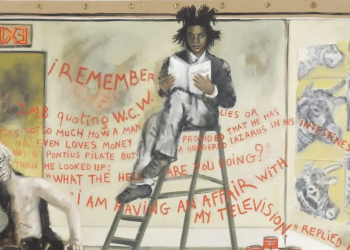 i REMEMBER
JMB quoting W.C.W.
LIES OR
SO MUCH HOW A MAN
PROVIDED THAT HE HAS
OR EVEN LOVES MONEY
A HUNDRED LAZARUS IN HIS
NOT A PONTIUS PILATE BUT
THEN HE LOOKED UP:
"WHAT THE HELL ARE YOU DOING?
"i AM HAVING AN AFFAIR WITH
MY TELEVISION" REPLIED